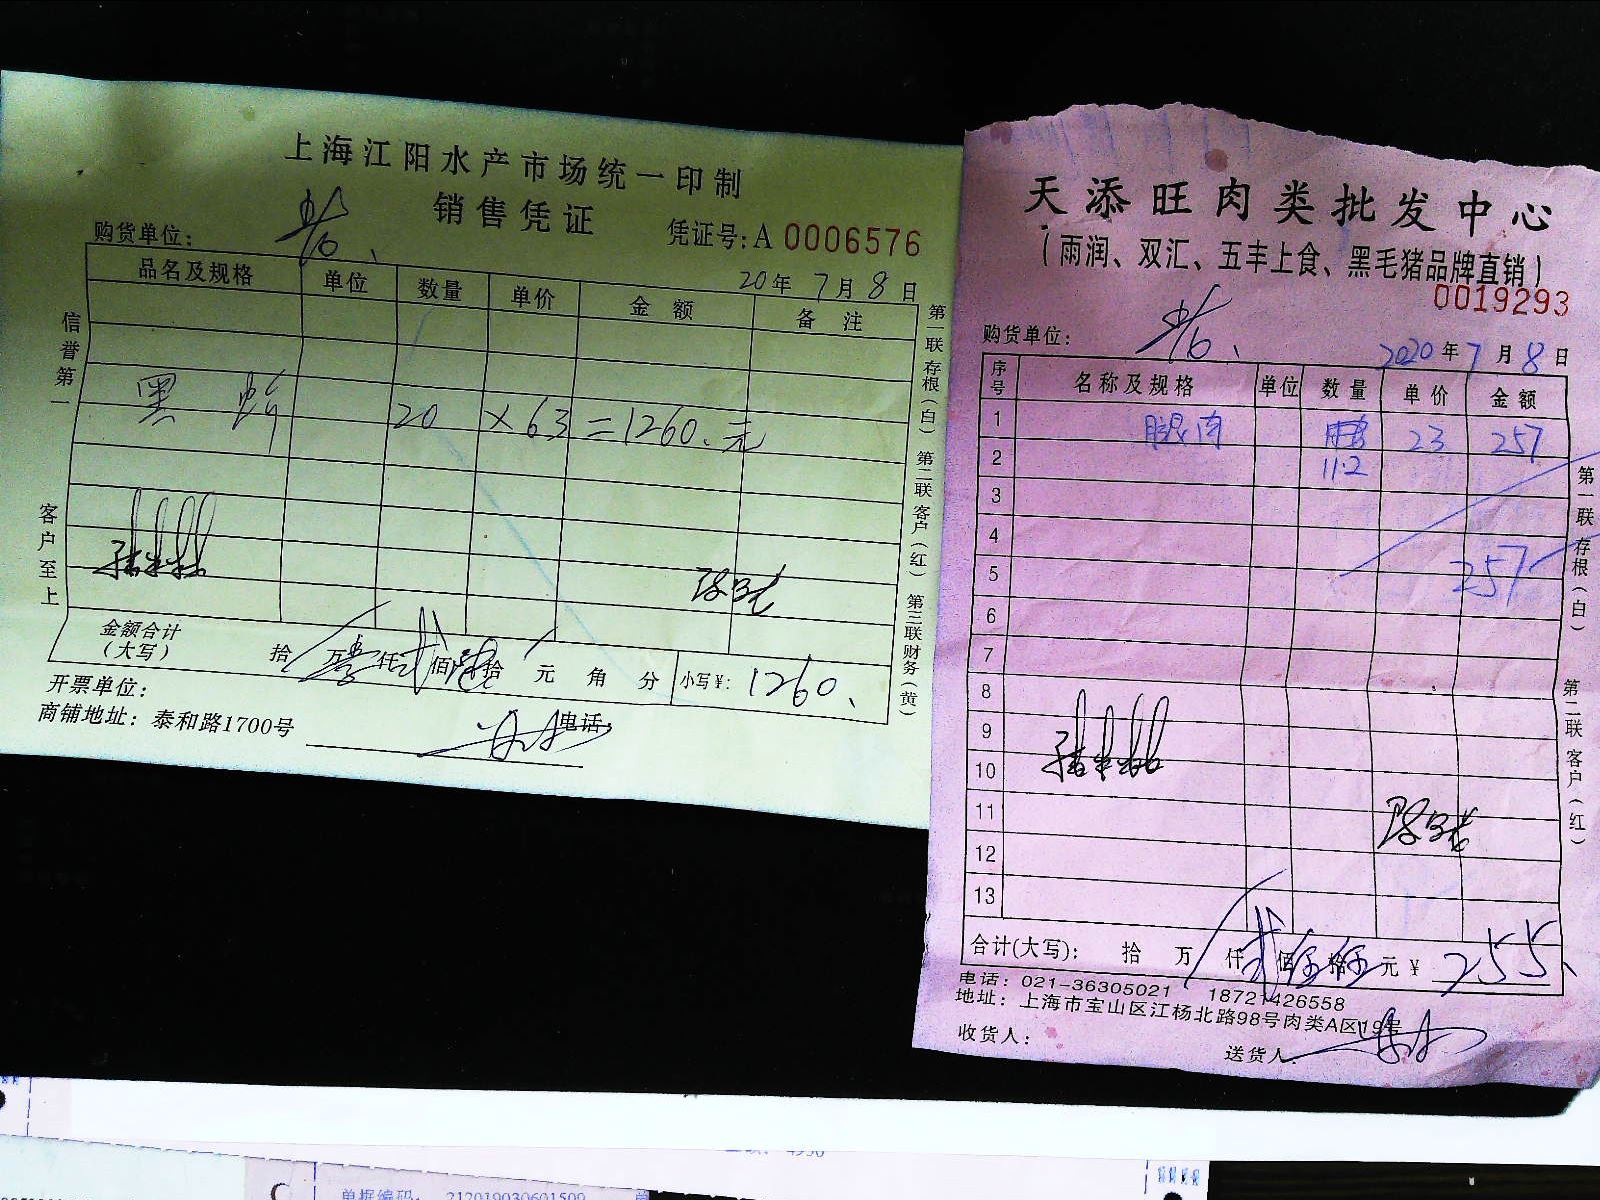 上海江阳水产市场统一印制
销售凭证
购货单位:
凭证号: A 0006576
20年 7月 8日
品名及规格 单位 数量 单价 金额 备注
黑 20 ×63 =1260.元
信誉第一
客户至上
第一联存根(白) 第二联客户(红) 第三联财务(黄)
金额合计
(大写) 拾 万 仟 佰 拾 元 角 分 小写¥: 1260.
开票单位:
商铺地址: 泰和路1700号 电话:
天添旺肉类批发中心
(雨润、双汇、五丰上食、黑毛猪品牌直销)
0019293
购货单位:
2020年 7月 8日
序号 名称及规格 单位 数量 单价 金额
1 腿肉 23 257
2 11.2
3
4
5 257
6
7
8
9
10
11
12
13
第一联 存根(白) 第二联 客户(红)
合计(大写): 拾 万 仟 贰佰伍拾伍元 ¥ 255.
电话: 021-36305021 18721426558
地址: 上海市宝山区江杨北路98号肉类A区19号
收货人: 送货人
单据编码: 212019030601509